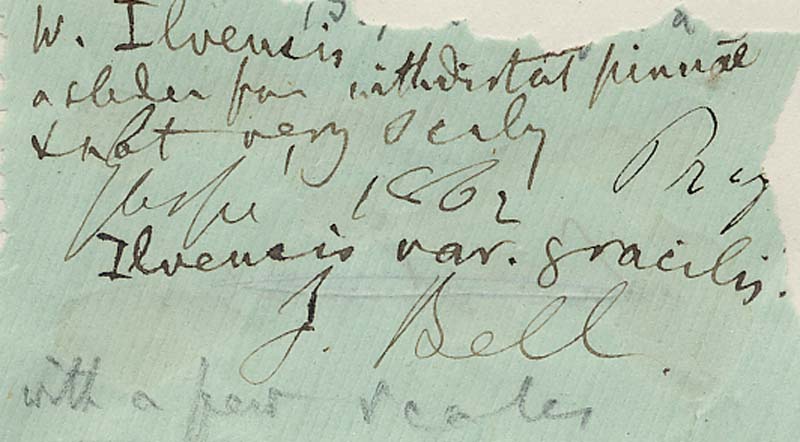 W. Ilvensis
a slender form with distat pinnae
& not very scaly
Gaspe 1862 Prag
Ilvensis var. gracilis.
J. Bell
with a few scales